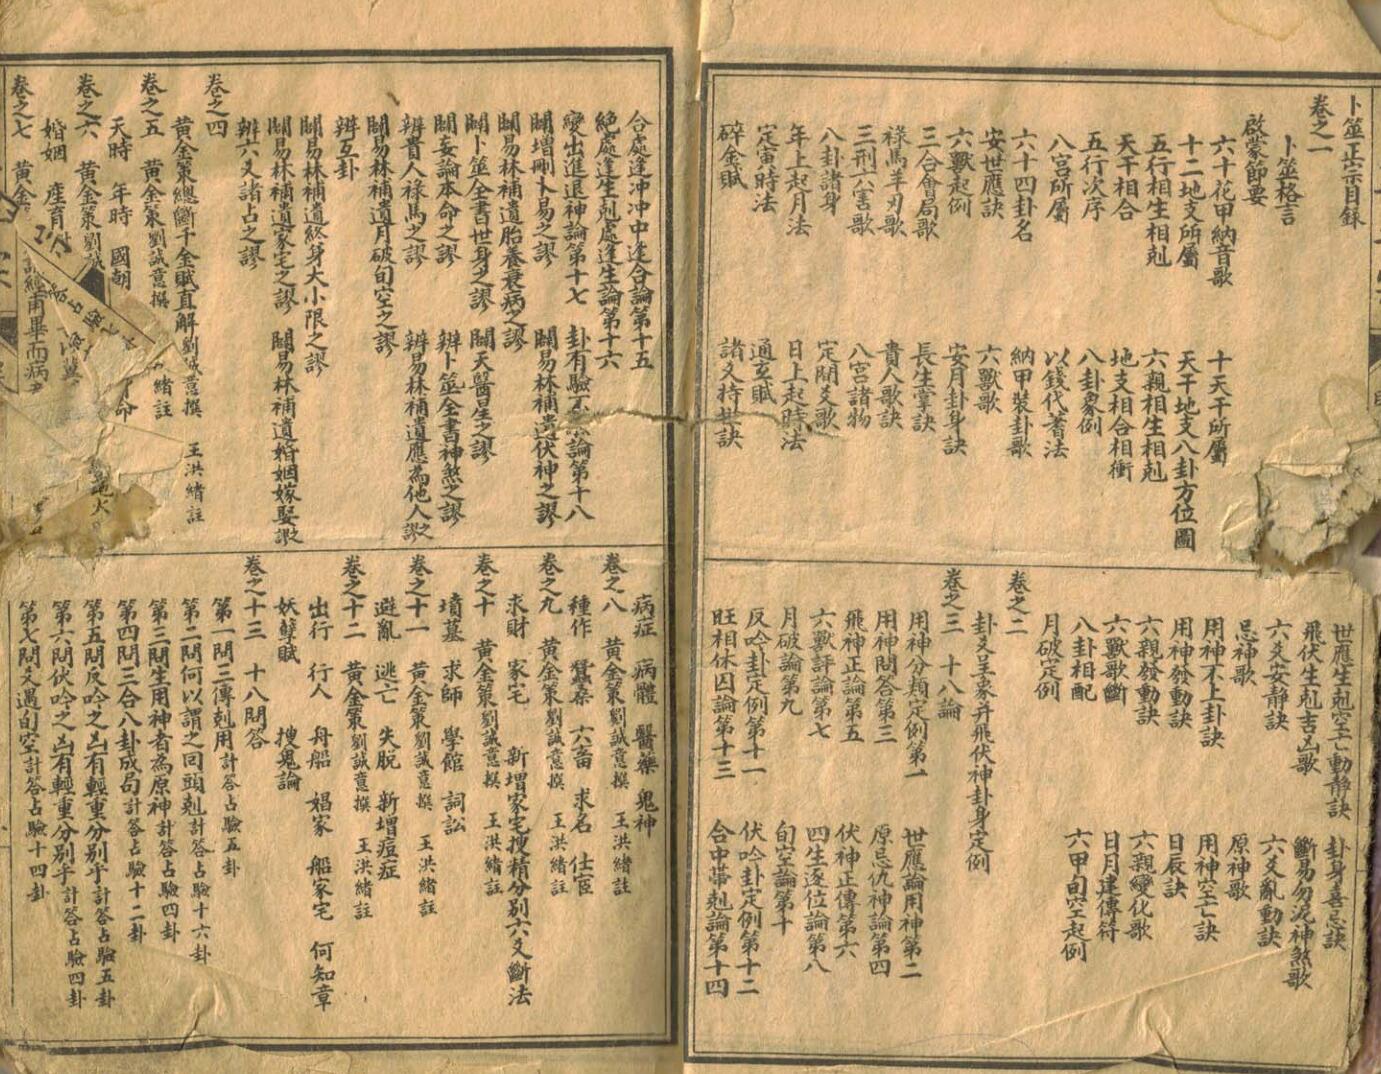 卜筮正宗目錄
卷之一
卜筮格言
啟蒙節要
六十花甲納音歌　十天干所屬
十二地支所屬　天干地支八卦方位圖
五行相生相剋　六親相生相剋
天干相合　地支相合相衝
五行次序　八卦象例
八宮所屬　以錢代蓍法
六十四卦名　納甲裝卦歌
安世應訣　六獸歌
六獸起例　安月卦身訣
三合會局歌　長生掌訣
祿馬羊刃歌　貴人歌訣
三刑六害歌　八宮諸物
八卦諸身　定間爻歌
年上起月法　日上起時法
定寅時法　通玄賦
碎金賦　諸爻持世訣
世應生剋空亡動靜訣　卦身喜忌訣
飛伏生剋吉凶歌　斷易勿泥神煞歌
六爻安靜訣　六爻亂動訣
忌神歌　原神歌
用神不上卦訣　用神空亡訣
用神發動訣　日辰訣
六親發動訣　六親變化歌
六獸歌斷　日月建傳符
八卦相配　六甲旬空起例
月破定例
卷之二
卦爻呈象并飛伏神卦身定例
卷之三　十八論
用神分類定例第一　世應論用神第二
用神問答第三　原忌仇神論第四
飛神正論第五　伏神正傳第六
六獸評論第七　四生逐位論第八
月破論第九　旬空論第十
反吟卦定例第十一　伏吟卦定例第十二
旺相休囚論第十三　合中帶剋論第十四
合處逢冲冲中逢合論第十五
絕處逢生剋處逢生論第十六
變出進退神論第十七　卦有驗不驗論第十八
闢增刪卜易之謬　闢易林補遺伏神之謬
闢易林補遺胎養衰病之謬
闢卜筮全書世身之謬　闢天醫星之謬
闢妄論本命之謬　辨卜筮全書神煞之謬
辨貴人祿馬之謬　辨易林補遺應為他人之謬
闢易林補遺月破旬空之謬
辨互卦
闢易林補遺終身大小限之謬
闢易林補遺家宅之謬　闢易林補遺婚姻嫁娶之謬
辨六爻諸占之謬
卷之四
黃金策總斷千金賦直解劉誠意撰　王洪緒註
卷之五　黃金策劉誠意撰　緒註
天時　年時　國朝　命
卷之六　黃金策劉誠
婚姻　產育
卷之七　黃金
病症　病體　醫藥　鬼神
卷之八　黃金策劉誠意撰　王洪緒註
種作　蠶桑　六畜　求名　仕宦
卷之九　黃金策劉誠意撰　王洪緒註
求財　家宅　新增家宅搜精分別六爻斷法
卷之十　黃金策劉誠意撰　王洪緒註
墳墓　求師　學館　詞訟
卷之十一　黃金策劉誠意撰　王洪緒註
避亂　逃亡　失脫　新增痘症
卷之十二　黃金策劉誠意撰　王洪緒註
出行　行人　舟船　娼家　船家宅　何知章
妖孽賦　搜鬼論
卷之十三　十八問答
第一問三傳剋用計答占驗五卦
第二問何以謂之回頭剋計答占驗十六卦
第三問生用神者為原神計答占驗四卦
第四問三合八卦成局計答占驗十二卦
第五問反吟之凶有輕重分別乎計答占驗五卦
第六問伏吟之凶有輕重分別乎計答占驗四卦
第七問爻遇旬空計答占驗十四卦